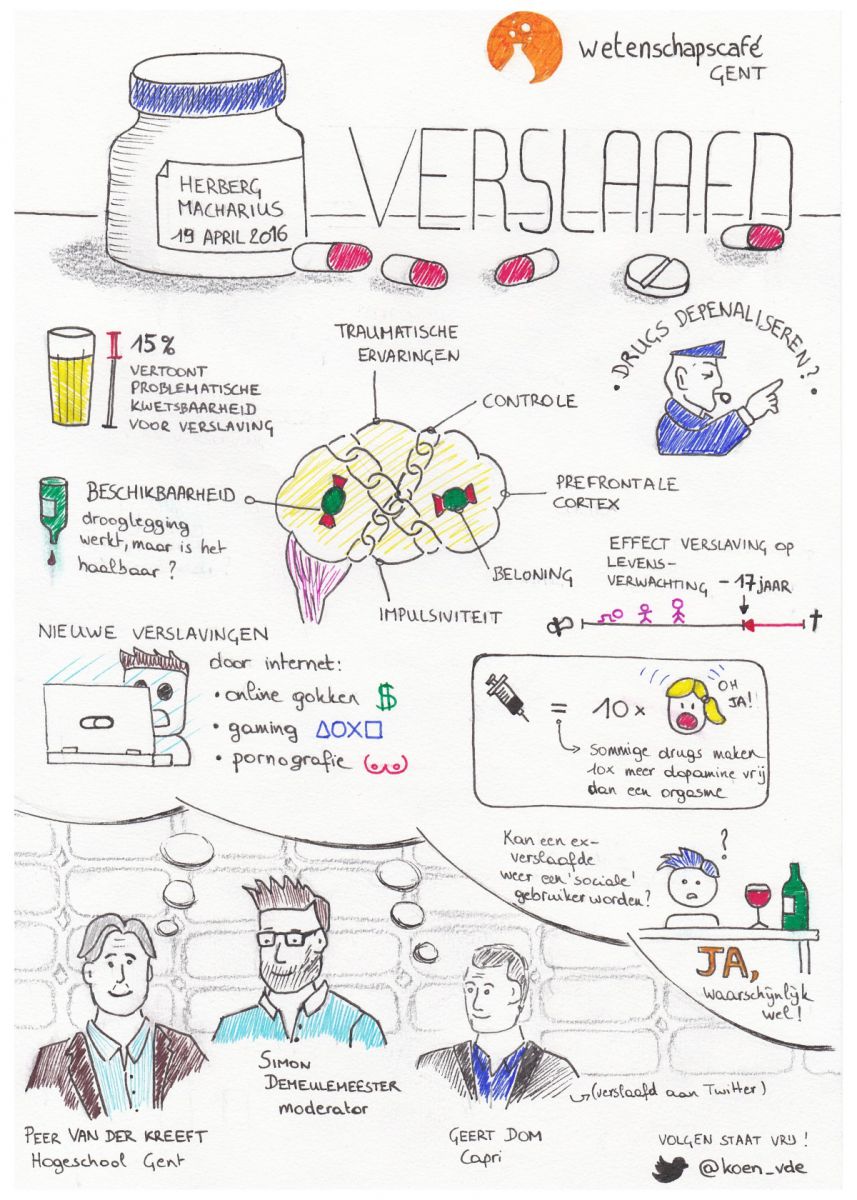 wetenschapscafé
GENT
VERSLAAFD
HERBERG
MACHARIUS
19 APRIL 2016
15%
VERTOONT
PROBLEMATISCHE
KWETSBAARHEID
VOOR VERSLAVING
TRAUMATISCHE
ERVARINGEN
CONTROLE
• DRUGS DEPENALISEREN? •
BESCHIKBAARHEID
drooglegging
werkt, maar is het
haalbaar?
PREFRONTALE
CORTEX
BELONING
IMPULSIVITEIT
EFFECT VERSLAVING OP
LEVENS-
VERWACHTING - 17 JAAR
NIEUWE VERSLAVINGEN
door internet:
• online gokken $
• gaming △OX□
• pornografie
= 10x
OH
JA!
Sommige drugs maken
10x meer dopamine vrij
dan een orgasme
Kan een ex-
verslaafde
weer een 'sociale'
gebruiker worden?
?
JA,
waarschijnlijk
wel!
SIMON
DEMEULEMEESTER
moderator
PEER VAN DER KREEFT
Hogeschool Gent
GEERT DOM
Capri
(verslaafd aan Twitter)
VOLGEN STAAT VRIJ!
@koen_vde